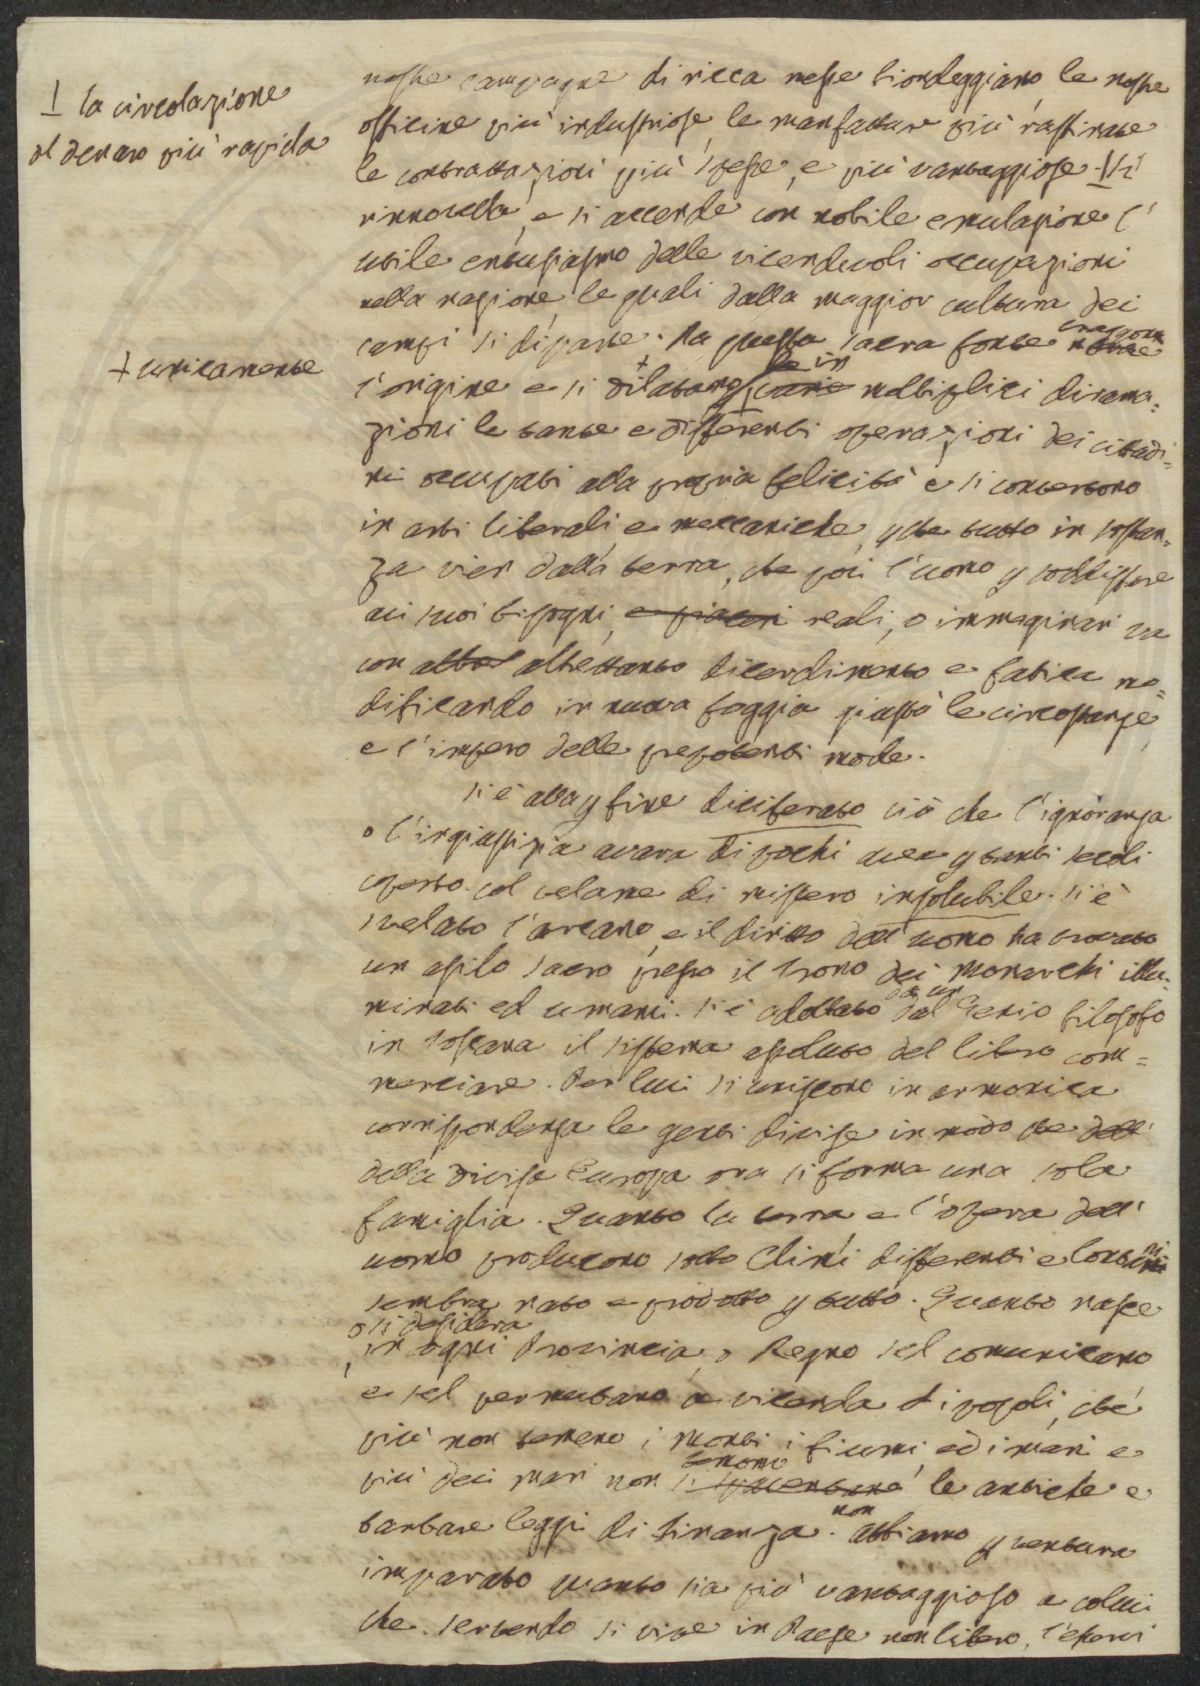 ⊥ la circolazione
del denaro più rapida
+ unicamente
nostre campagne di ricca messe biondeggiano le nostre
officine più industriose, le manfatture più raffinate
le contrattazioni più spesse, e più vantaggiose ⊥ si
rinnovella, e si accende con nobile emulazione l'
utile entusiasmo delle vicendevoli occupazioni
nella nazione, le quali dalla maggior cultura dei
campi si diparte. Da questa sacra fonte traggono
l'origine e si + dilatano in moltiplici dirama=
zioni le tante e differenti operazioni dei cittadi=
ni occupati alla propria felicità e si convertono
in arti liberali, e meccaniche, che tutto in sostan=
za vien dalla terra, che poi l'uomo p soddisfare
ai suoi bisogni, e piaceri reali, o immaginari va
con altrettanto dicerdimento e fatica mo=
dificando in nuova foggia giusta le circostanze,
e l'impero delle prepotenti mode.
Si è alla p fine diciferato ciò che l'ignoranza
o l'ingiustizia avara di pochi avea p tanti secoli
coperto col velame di mistero insolubile. Si è
svelato l'arcano, e il diritto dell'uomo ha trovato
un asilo sacro presso il trono dei Monarchi illu=
minati ed umani. Si è adottato da un Genio filosofo
in Toscana il sistema assoluto del libero com=
merciare. Per lui si uniscono in armonica
corrispondenza le genti divise in modo che
della divisa Europa ora si forma una sola
famiglia. Quanto la terra e l'opera dell'
uomo producono sotto Climi differenti e lontani
sembra nato e prodotto p tutto. Quanto nasce
o si desidera
in ogni Provincia, o Regno sel comunicano
e sel permutano a vicenda i popoli, che
più non temeno i monti i fiumi, ed i mari e
più dei mari non temono le antiche e
barbare leggi di finanza. non abbiamo p ventura
imparato quanto sia più vantaggioso a colui
che servendo si vive in Paese non libero,